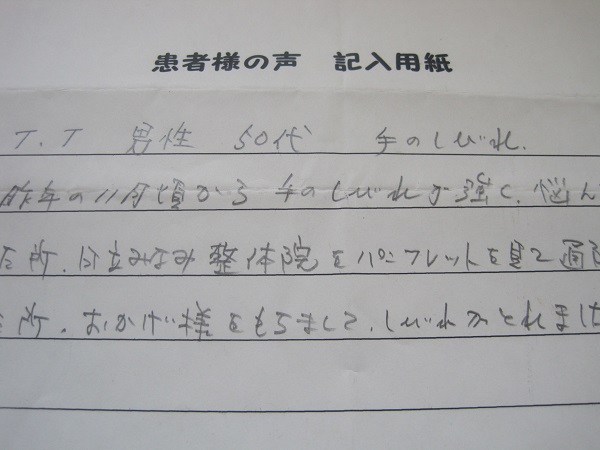 患者様の声 記入用紙
T.T 男性 50代 手のしびれ.
昨年の11月頃から 手のしびれが強く、悩ん
所、日立みなみ整体院をパンフレットを見て通
所、おかげ様をもちまして、しびれがとれました